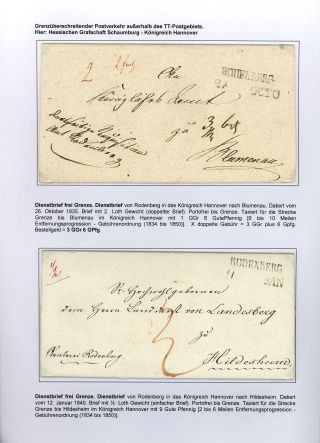 Grenzüberschreitender Postverkehr außerhalb des TT-Postgebiets.
Hier: Hessischen Grafschaft Schaumburg - Königreich Hannover
2
RODENBERG
OCTO
An
zu
Blumenau
Dienstbrief frei Grenze. Dienstbrief von Rodenberg in das Königreich Hannover nach Blumenau. Datiert vom
26. Oktober 1835. Brief mit 2 Loth Gewicht (doppelter Brief). Portofrei bis Grenze. Taxiert für die Strecke
Grenze bis Blumenau im Königreich Hannover mit 1 GGr 6 GutePfennig [6 bis 10 Meilen
Entfernungsprogression - Gebührenordnung (1834 bis 1850)]. X doppelte Gebühr = 3 GGr plus 6 Gpfg.
Bestellgeld = 3 GGr 6 GPfg.
RODENBERG
JAN
Sr. Hochwohlgeboren
dem Herrn Landrath von Landesberg
zu
Renterei Rodenberg
Hildesheim
Dienstbrief frei Grenze. Dienstbrief von Rodenberg in das Königreich Hannover nach Hildesheim. Datiert
vom 12. Januar 1840. Brief mit ½ Loth Gewicht (einfacher Brief). Portofrei bis Grenze. Taxiert für die Strecke
Grenze bis Hildesheim im Königreich Hannover mit 9 Gute Pfennig [2 bis 6 Meilen Entfernungsprogression -
Gebührenordnung (1834 bis 1850)].